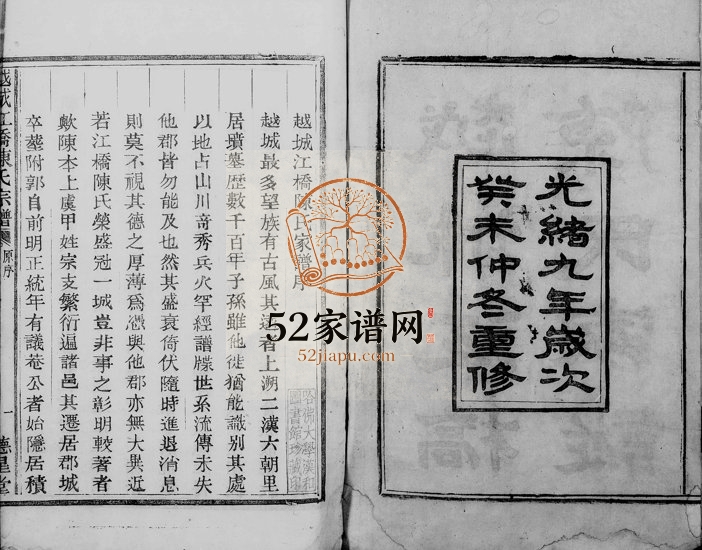 光緒九年歲次
癸未仲冬重修
越城江橋陳氏家譜序
越城最多望族有古風其遠者上溯二漢六朝里
居墳墓歷數千百年子孫雖他徙猶能識別其處
以地占山川奇秀兵火罕經譜牒世系流傳未失
他郡皆勿能及也然其盛衰倚伏隨時進退消息
則莫不視其德之厚薄爲憑與他郡亦無大異近
若江橋陳氏榮盛冠一城豈非事之彰明較著者
歟陳本上虞甲姓宗支繁衍遍諸邑其遷居郡城
卒塟附郭自前明正統年有議菴公者始隱居積
越城江橋陳氏宗譜
原序
一
德星堂
52家谱网
52jiapu.com